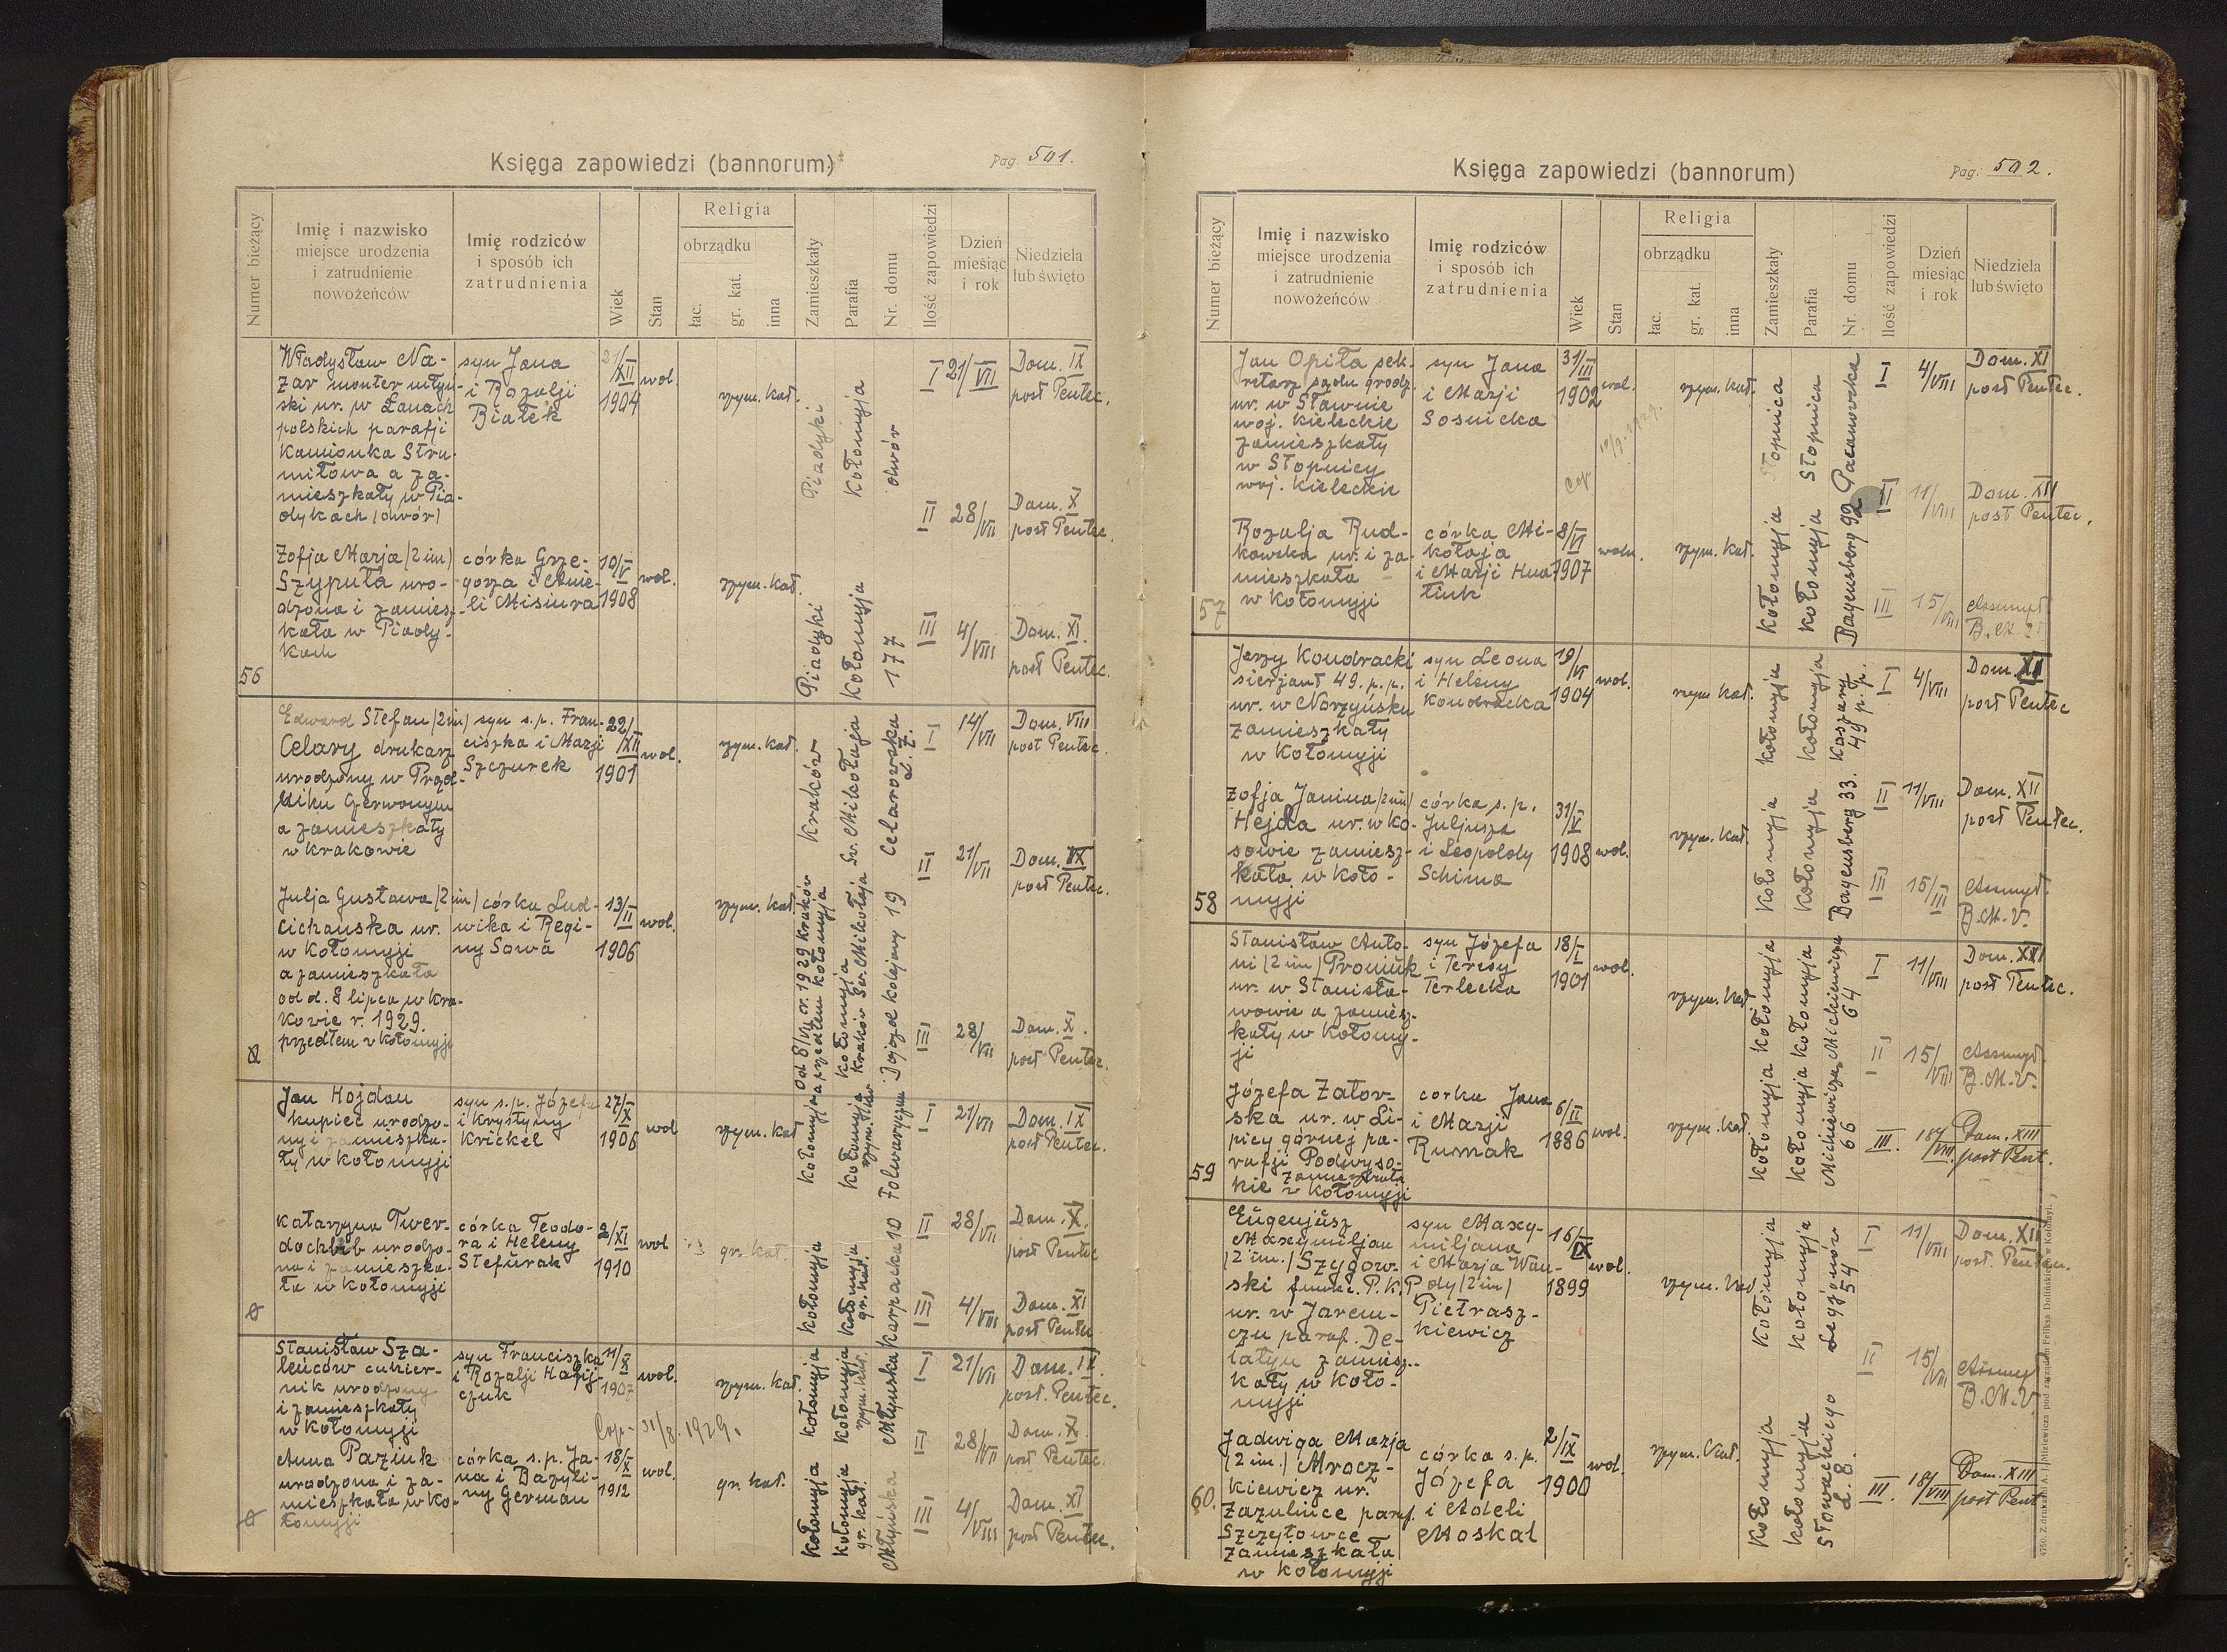 Księga zapowiedzi (bannorum)
Pag. 501.
Numer bieżący
Imię i nazwisko
miejsce urodzenia
i zatrudnienie
nowożeńców
Imię rodziców
i sposób ich
zatrudnienia
Wiek
Stan
Religia
obrządku
łac.
gr. kat.
inna
Zamieszkały
Parafia
Nr. domu
Ilość zapowiedzi
Dzień
miesiąc
i rok
Niedziela
lub święto
56
Władysław Na-
zar monter młyń-
ski ur. w Łanach
polskich parafji
Kamionka Stru-
miłowa a za-
mieszkały w Pia-
dykach (dwór)
syn Jana
i Rozalji
Białek
21/XII
1904
wol.
rzym. kat.
Piadyki
Kołomyja
dwór
I 21/VII Dom. IX
post Pentec.
II 28/VII Dom. X
post Pentec.
Zofja Marja (2 im)
Szypuła uro-
dzona i zamiesz-
kała w Piady-
kach
córka Grze-
gorza i Anie-
li Misiura
10/V
1908
wol.
rzym. kat.
Piadyki
Kołomyja
177
III 4/VIII Dom. XI
post Pentec.
Edward Stefan (2 im)
Celary drukarz
urodzony w Prąd-
niku Czerwonym
a zamieszkały
w Krakowie
syn s.p. Fran-
ciszka i Marji
Szczurek
22/XII
1901
wol.
rzym. kat.
Kraków
św. Mikołaja
Celarowska
L. 7.
I 14/VII Dom. VIII
post Pentec.
II 21/VII Dom. IX
post Pentec.
Julja Gustawa (2 im)
Cichańska ur.
w Kołomyji
a zamieszkała
od d. 8 lipca w Kra-
kowie r. 1929.
przedtem w Kołomyji
córka Lud-
wika i Regi-
ny Sowa
13/II
1906
wol.
rzym. kat.
od 8/VII r. 1929 Kraków
a przedtem Kołomyja
Kołomyja
Kraków św. Mikołaja
Dojazd kolejowy 19
III 28/VII Dom. X.
post Pentec.
Jan Hojdan
kupiec urodzo-
ny i zamieszka-
ły w Kołomyji
syn s.p. Józefa
i Krystyny
Krickel
27/X
1906
wol
rzym. kat
Kołomyja
Kołomyja
rzym. kat
Folwaryczna
I 21/VII Dom. IX
post Pentec.
Katarzyna Twer-
dochlib urodzo-
na i zamieszka-
ła w Kołomyji
córka Teodo-
ra i Heleny
Stefurak
2/XI
1910
wol
gr. kat.
Kołomyja
Kołomyja
gr. kat.
Karpacka 10
II 28/VII Dom. X.
post Pentec
III 4/VIII Dom. XI
post Pentec
Stanisław Sza-
leńców cukier-
nik urodzony
i zamieszkały
w Kołomyji
syn Franciszka
i Rozalji Hafij-
czuk
11/XI
1907
wol.
rzym. kat.
Kołomyja
Kołomyja
rzym. kat.
Młyńska
I 21/VII Dom. IX.
post. Pentec.
Cop. 31/8. 1929.
Anna Paziuk
urodzona i za-
mieszkała w Ko-
łomyji
córka s.p. Ja-
na i Bazyli-
ny German
18/X
1912
wol.
gr. kat.
Kołomyja
Kołomyja
gr. kat.
Młyńska
II 28/VII Dom. X.
post Pentec.
III 4/VIII Dom. XI
post Pentec.
Księga zapowiedzi (bannorum)
Pag. 502.
Numer bieżący
Imię i nazwisko
miejsce urodzenia
i zatrudnienie
nowożeńców
Imię rodziców
i sposób ich
zatrudnienia
Wiek
Stan
Religia
obrządku
łac.
gr. kat.
inna
Zamieszkały
Parafia
Nr. domu
Ilość zapowiedzi
Dzień
miesiąc
i rok
Niedziela
lub święto
57
Jan Opiła sek-
retarz sądu grodz.
ur. w Sławnie
woj. kieleckie
zamieszkały
w Stopnicy
woj. kieleckie
syn Jana
i Marji
Sosnicka
31/III
1902
wol.
Cop.
rzym. kat.
Stopnica
Stopnica
Pacanowska
I 4/VIII Dom. XI
post Pentec.
II 11/VIII Dom. XII
post Pentec.
Rozalja Rud-
kowska ur. i za-
mieszkała
w Kołomyji
córka Mi-
kołaja
i Marji Hna-
tiuk
8/VI
1907
woln.
rzym. kat.
Kołomyja
Kołomyja
Bagensberg 92
III 15/VIII Assumpt
B.M.
58
Jerzy Kondracki
sierżant 49. p.p.
ur. w Noryńsku
zamieszkały
w Kołomyji
syn Leona
i Heleny
Kondracka
19/VI
1904
wol.
rzym. kat.
Kołomyja
Kołomyja
Koszary
49 p.p.
I 4/VIII Dom. XI
post Pentec
Zofja Janina (2 im)
Hejda ur. w Ko-
sowie zamiesz-
kała w Koło-
myji
córka s.p.
Juljusza
i Leopoldy
Schima
31/V
1908
wol.
rzym. kat.
Kołomyja
Kołomyja
Bagensberg 33.
II 11/VIII Dom. XII
post Pentec.
III 15/VIII Assumpt.
B.M.V.
59
Stanisław Anto-
ni (2 im) Proniuk
ur. w Stanisła-
wowie a zamiesz-
kały w Kołomy-
ji
syn Józefa
i Teresy
Terlecka
18/I
1901
wol.
rzym. kat
Kołomyja
Kołomyja
Mickiewicza
64
I 11/VIII Dom. XII
post Pentec.
II 15/VIII Assumpt.
B.M.V.
Józefa Zator-
ska ur. w Li-
picy górnej pa-
rafji Podwyso-
kie zamieszkała
w Kołomyji
corka Jana
i Marji
Rumak
6/II
1886
wol.
rzym. kat.
Kołomyja
Kołomyja
Mickiewicza
66
III. 18/VIII Dom. XIII
post Pent.
60.
Eugenjusz
Maxymiljan
(2 im.) Szygow-
ski funkc. P.K.P
ur. w Jarem-
czu paraf. De-
latyn zamiesz-
kały w Koło-
myji
syn Maxy-
miljana
i Marja Wan-
dy (2 im)
Pietrasz-
kiewicz
16/IX
1899
wol.
rzym. kat
Kołomyja
Kołomyja
Legjonów
54
I 11/VIII Dom. XII
post. Pentec.
II 15/VIII Assumpt
B.M.V
Jadwiga Marja
(2 im.) Mrocz-
kiewicz ur.
Zazulińce paraf.
Szczytowce
zamieszkała
w Kołomyji
córka s.p.
Józefa
i Adeli
Moskal
2/IX
1900
wol.
rzym. kat.
Kołomyja
Kołomyja
Słowackiego
L. 8.
III. 18/VIII Dom. XIII
post Pent
4750. Z drukarni A. J. Miziewicza pod zarządem Feliksa Dolińskiego w Kołomyi.